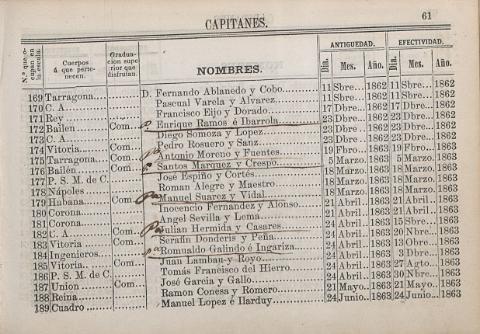 CAPITANES. 61
N.º que ocupan en la escala. Cuerpos á que pertenecen. Graduacion superior que disfrutan. NOMBRES. ANTIGUEDAD. Dia. Mes. Año. EFECTIVIDAD. Dia. Mes. Año.
169 Tarragona.. D. Fernando Ablanedo y Cobo 11 Sbre... 1862 11 Sbre... 1862
170 C. A. Pascual Varela y Alvarez 11 Sbre... 1862 11 Sbre... 1862
171 Rey Francisco Eijo y Dorado 17 Dbre... 1862 17 Dbre... 1862
172 Bailen Com.. Enrique Ramos é Ibarrola 23 Dbre... 1862 23 Dbre... 1862
173 C. A. Diego Somoza y Lopez 23 Dbre... 1862 23 Dbre... 1862
174 Vitoria Com.. Pedro Rosuero y Sanz 19 Abril.. 1863 19 Abril.. 1863
175 Tarragona.. Com.. Antonio Moreno y Fuentes 5 Marzo. 1863 5 Marzo. 1863
176 Bailén Com.. Santos Marquez y Crespo 18 Marzo. 1863 18 Marzo. 1863
177 P. S. M. de C. José Espiño y Cortés 18 Marzo. 1863 18 Marzo. 1863
178 Nápoles Roman Alegre y Maestro 18 Marzo. 1863 18 Marzo. 1863
179 Habana Com.. Manuel Suarez y Vidal 18 Marzo. 1863 18 Marzo. 1863
180 Corona Inocencio Fernandez y Alonso 21 Abril.. 1863 21 Abril.. 1863
181 Corona Angel Sevilla y Lema 21 Abril.. 1863 21 Abril.. 1863
182 C. A. Com.. Julian Hermida y Casares 24 Abril.. 1863 15 Sbre... 1863
183 Vitoria Com.. Serafin Donderis y Peña 24 Abril.. 1863 20 Nbre.. 1863
184 Ingenieros. Romualdo Galindo é Ingariza 24 Abril.. 1863 13 Obre.. 1863
185 Vitoria Com.. Juan Lambau y Royo 24 Abril.. 1863 3 Dbre... 1863
186 P. S. M. de C. Tomás Francisco del Hierro 24 Abril.. 1863 27 Agto.. 1863
187 Union Com.. José Garcia y Gallo 24 Abril.. 1863 30 Nbre.. 1863
188 Reina Ramon Conesa y Romero 21 Mayo.. 1863 21 Mayo.. 1863
189 Cuadro Manuel Lopez é Ilarduy 24 Junio.. 1863 24 Junio.. 1863